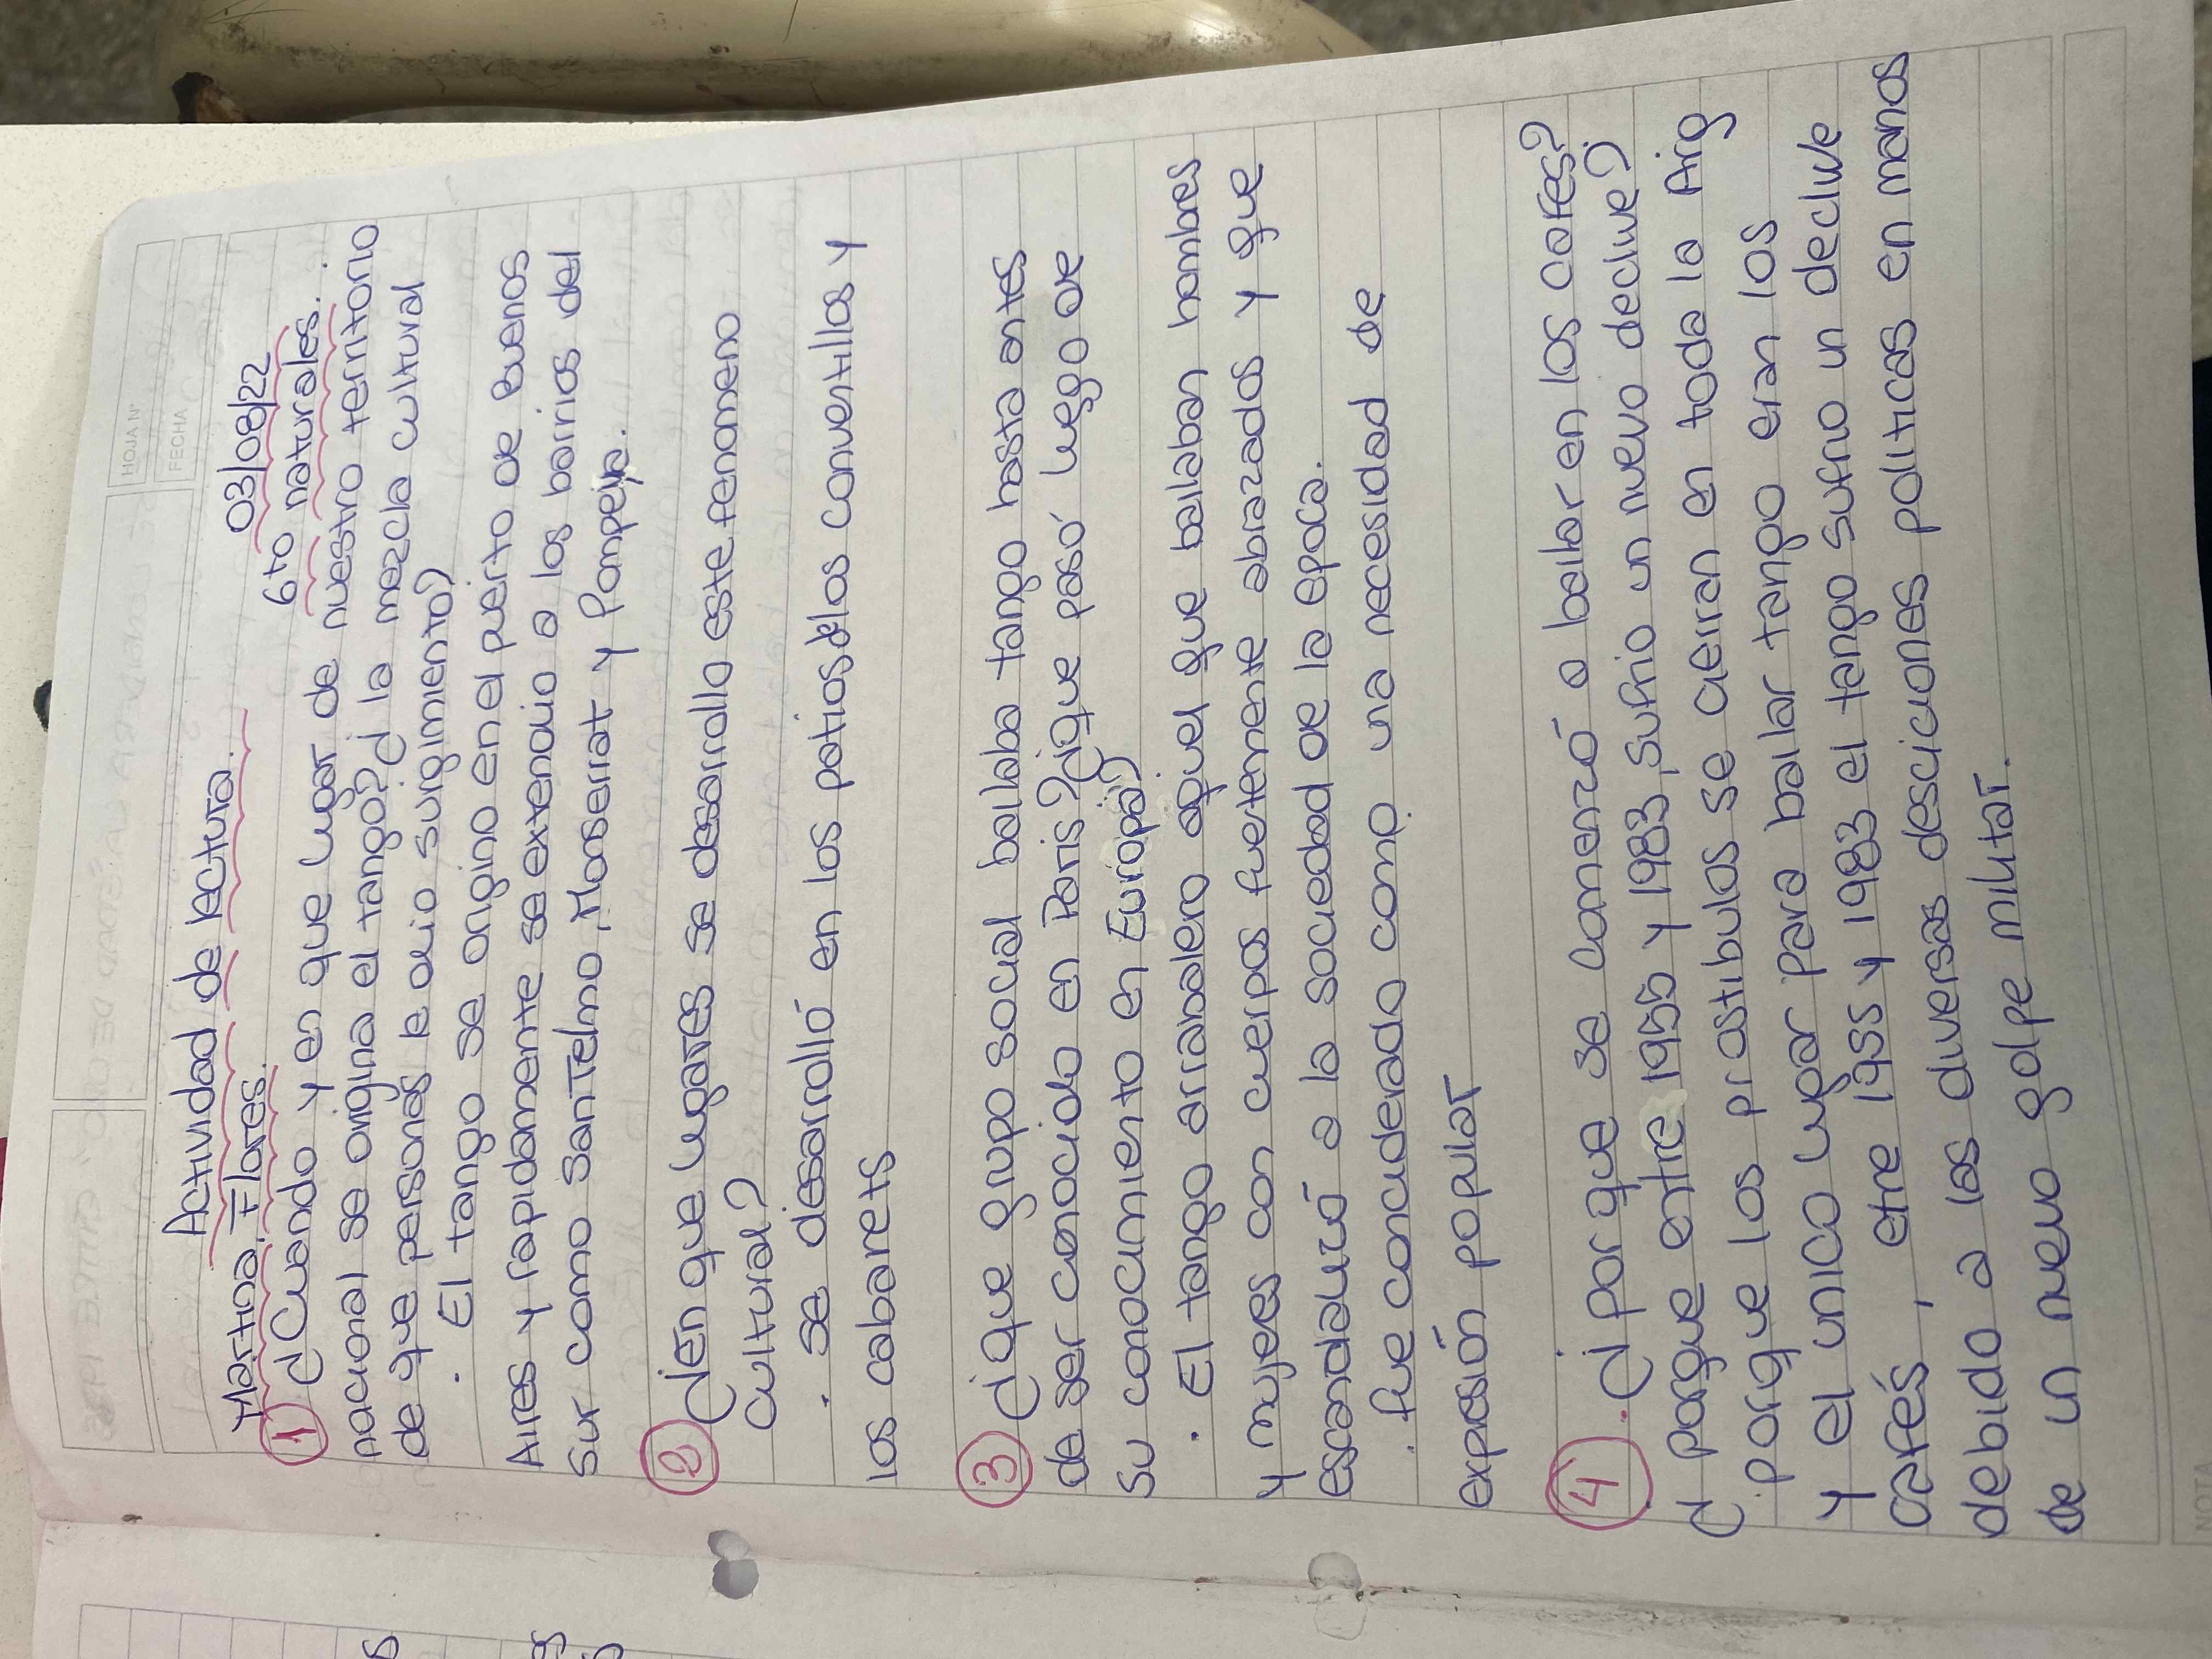 HOJA Nº
FECHA
Actividad de lectura.
03/08/22
Martina Flores.
6to naturales.
1 ¿Cuando y en que lugar de nuestro territorio
nacional se origina el tango? ¿ la mezcla cultural
de que personas le dio surgimiento?
. El tango se origino en el puerto de Buenos
Aires y rapidamente se extendio a los barrios del
sur como San Telmo, Monserrat y Pompeya.
2 ¿En que lugares se desarrollo este fenomeno
cultural?
. se desarrolló en los patios de los conventillos y
los cabarets
3 ¿que grupo social bailaba tango hasta antes
de ser conocido en Paris? ¿que pasó luego de
su conocimiento en Europa?
. El tango arrabalero aquel que bailaban hombres
y mujeres con cuerpos fuertemente abrazados y que
escandalizó a la sociedad de la epoca.
. fue conciderado como una necesidad de
expresión popular
4 . ¿ por que se comenzó a bailar en los cafes?
¿ porque entre 1955 y 1983, sufrio un nuevo declive?
porque los prostibulos se cierran en toda la Arg
y el unico lugar para bailar tango eran los
cafés, etre 1955 y 1983 el tango sufrio un declive
debido a las diversas desiciones politicas en manos
de un nuevo golpe militar.
NOTA